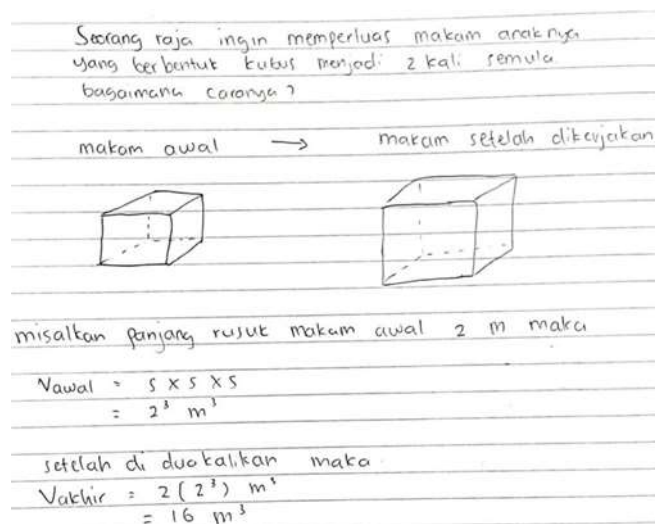 Seorang raja ingin memperluas makam anaknya
yang berbentuk kubus menjadi 2 kali semula
bagaimana caranya?
makam awal → makam setelah dikerjakan
misalkan panjang rusuk makam awal 2 m maka
Vawal = s x s x s
= 2³ m³
setelah di duakalikan maka
Vakhir = 2 (2³) m³
= 16 m³